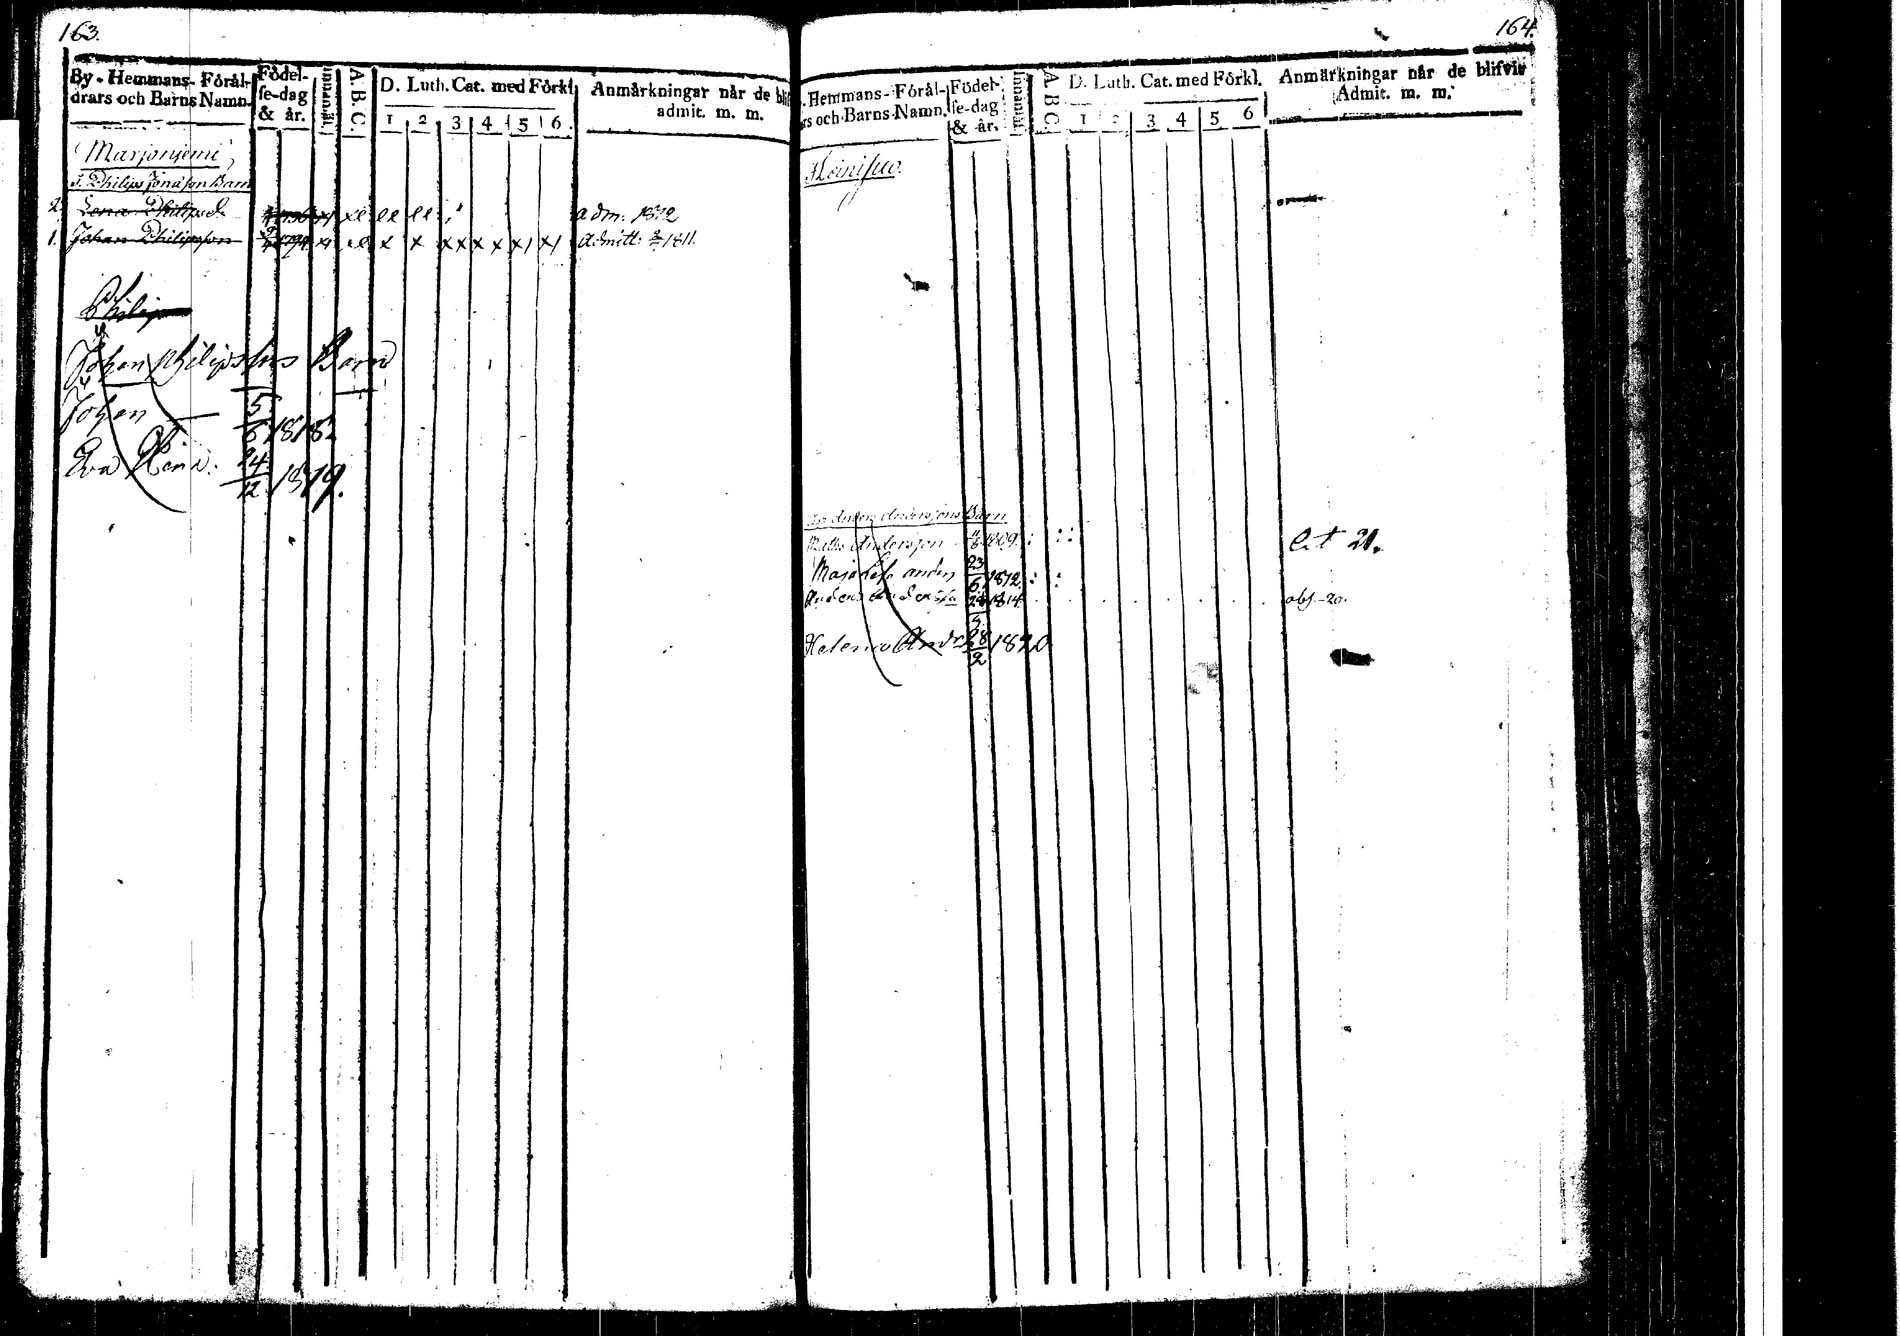 163.
By- Hemmans- Föräl-
drars och Barns Namn.
Födel-
se-dag
& år.
Innanät.
A. B. C.
D. Luth. Cat. med Förkl.
1 2 3 4 5 6.
Anmärkningar når de blif
admit. m. m.
Marjoniemi
Philips Jonasson Barn
2. Lena Philipsd. adm: 1812
1. Johan Philipsson admitt: 1811.
Philip
Johan Philipssons Barn
Johan 5/6 1818
Eva Lena. 24/12 1819.
164.
Hemmans- Förål-
rs och Barns Namn.
Födel-
se-dag
& år.
Innanät.
A. B. C.
D. Luth. Cat. med Förkl.
1 2 3 4 5 6
Anmärkningar når de blifvit
Admit. m. m.
Heinisuo.
Anders Anderssons Barn
Matts Andersson 11/8 1809.
Maja anders 23/6 1812.
Anders Andersson 1814 abs. 20.
Helena Andersd. 28/2 1820